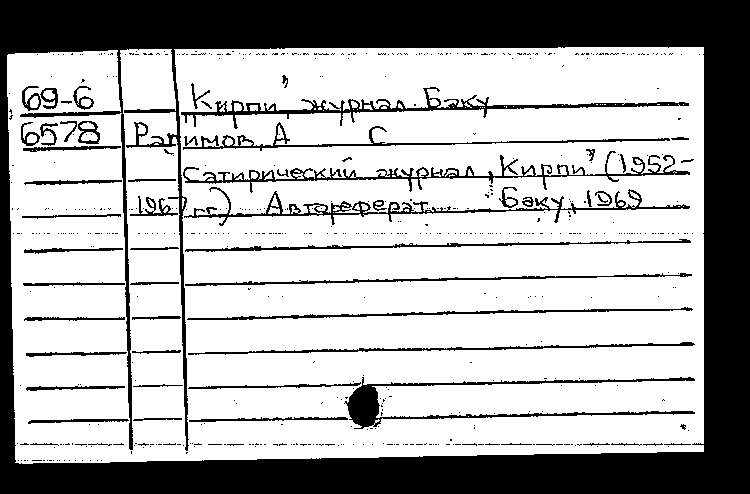 69-6 „Кирпи", журнал. Баку
6578 Рагимов, А С
Сатирический журнал „Кирпи" (1952-
1967 гг.) Автореферат... Баку, 1969